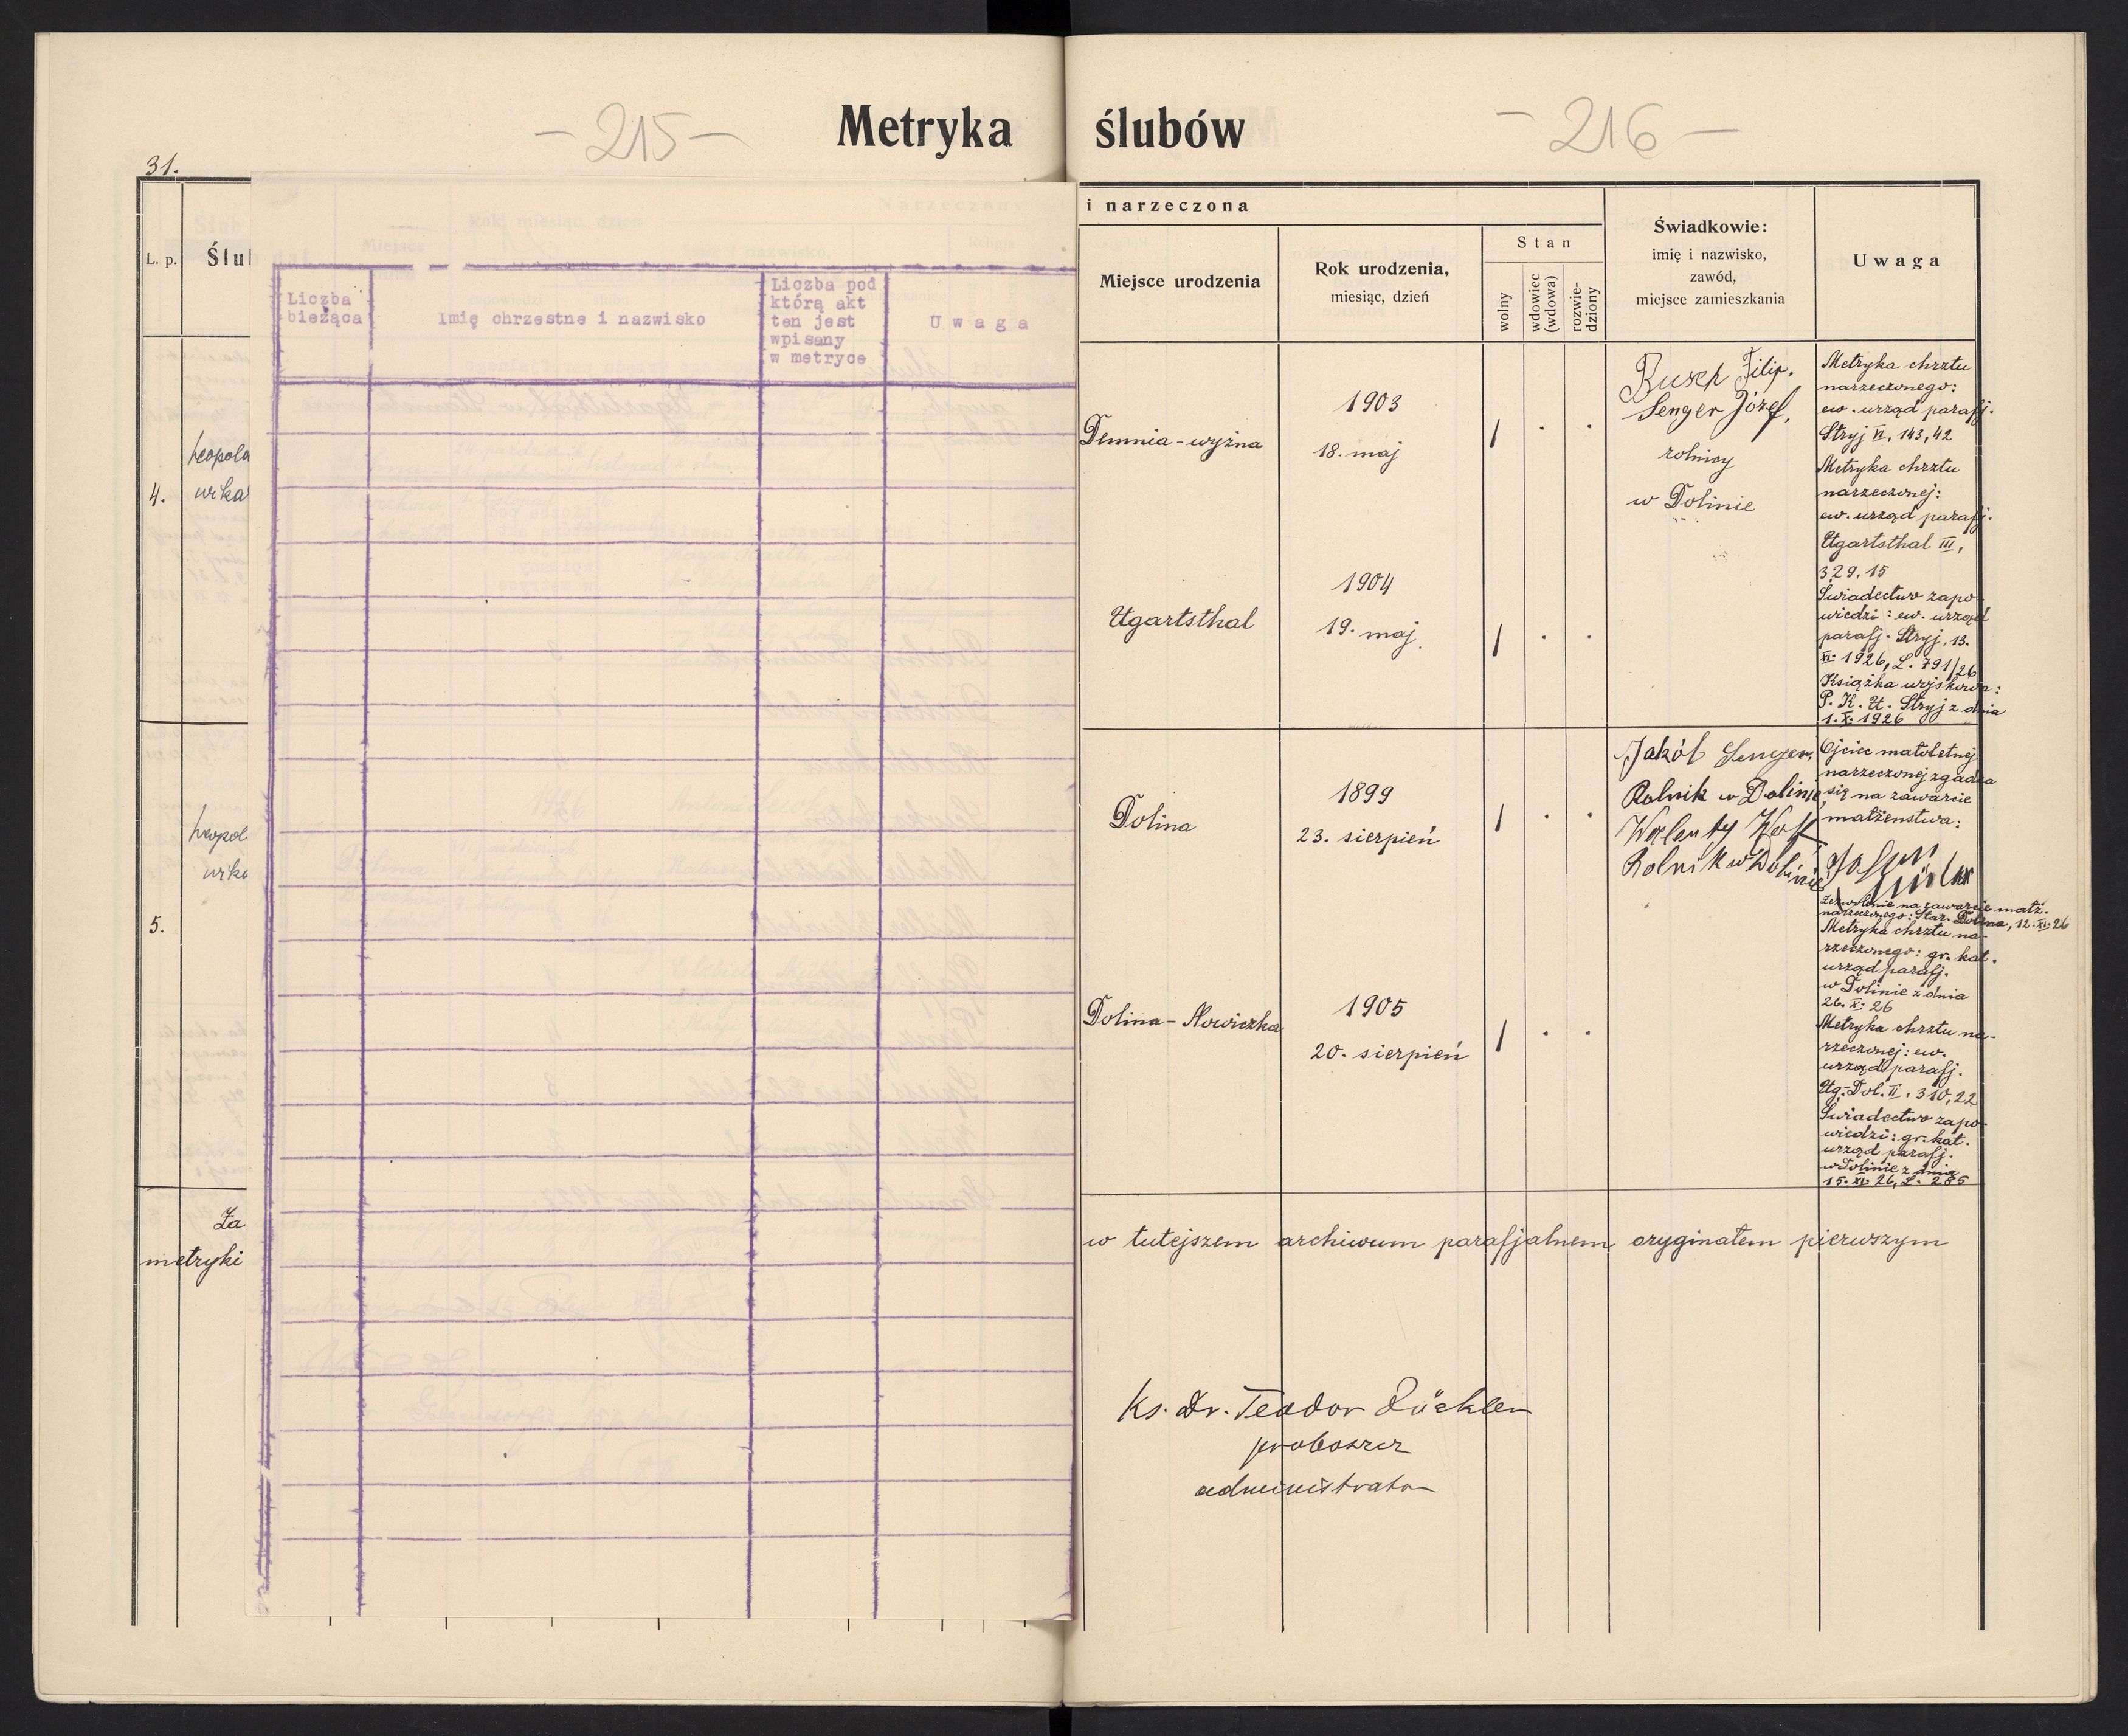 Metryka ślubów
- 215 -
- 216 -
31.
L. p.
Ślu
4.
Leopol
wka
5.
Leopol
wka
Za
metryki
Liczba
bieżąca
Imię chrzestne i nazwisko
Liczba pod
którą akt
ten jest
wpisany
w metryce
Uwaga
i narzeczona
Miejsce urodzenia
Rok urodzenia,
miesiąc, dzień
Stan
wolny
wdowiec
(wdowa)
rozwie-
dziony
Świadkowie:
imię i nazwisko,
zawód,
miejsce zamieszkania
Uwaga
Demnia-wyżna
1903
18. maj
Ugartsthal
1904
19. maj.
Busch Filip.
Senger Józef,
rolnicy
w Dolinie
Metryka chrztu
narzeczonego:
ew. urząd parafj.
Stryj VI, 143, 42
Metryka chrztu
narzeczonej:
ew. urząd parafj.
Ugartsthal III,
329, 15
Świadectwo zapo-
wiedzi: ew. urząd
parafj. Stryj, 13.
XI. 1926, L. 791/26
Książka wojskowa:
P. K. U. Stryj z dnia
1. X. 1926
Dolina
1899
23. sierpień
Dolina-Nowiczka
1905
20. sierpień
Jakób Senger,
Rolnik w Dolinie,
Walenty
Rolnik w Dolinie
Ojciec małoletnej
narzeczonej zgadza
się na zawarcie
małżeństwa:
Zezwolenie na zawarcie małż.
narzeczonego: Star. Dolina, 12. XI. 26
Metryka chrztu na-
rzeczonego: gr. kat.
urząd parafj.
w Dolinie z dnia
26. X. 26
Metryka chrztu na-
rzeczonej: ew.
urząd parafj.
Ug.-Dol. II, 310, 22
Świadectwo zapo-
wiedzi: gr. kat.
urząd parafj.
w Dolinie z dnia
15. XI. 26, L. 285
w tutejszem archiwum parafjalnem oryginałem pierwszym
Ks. Dr. Teodor Zöckler
proboszcz
administrator